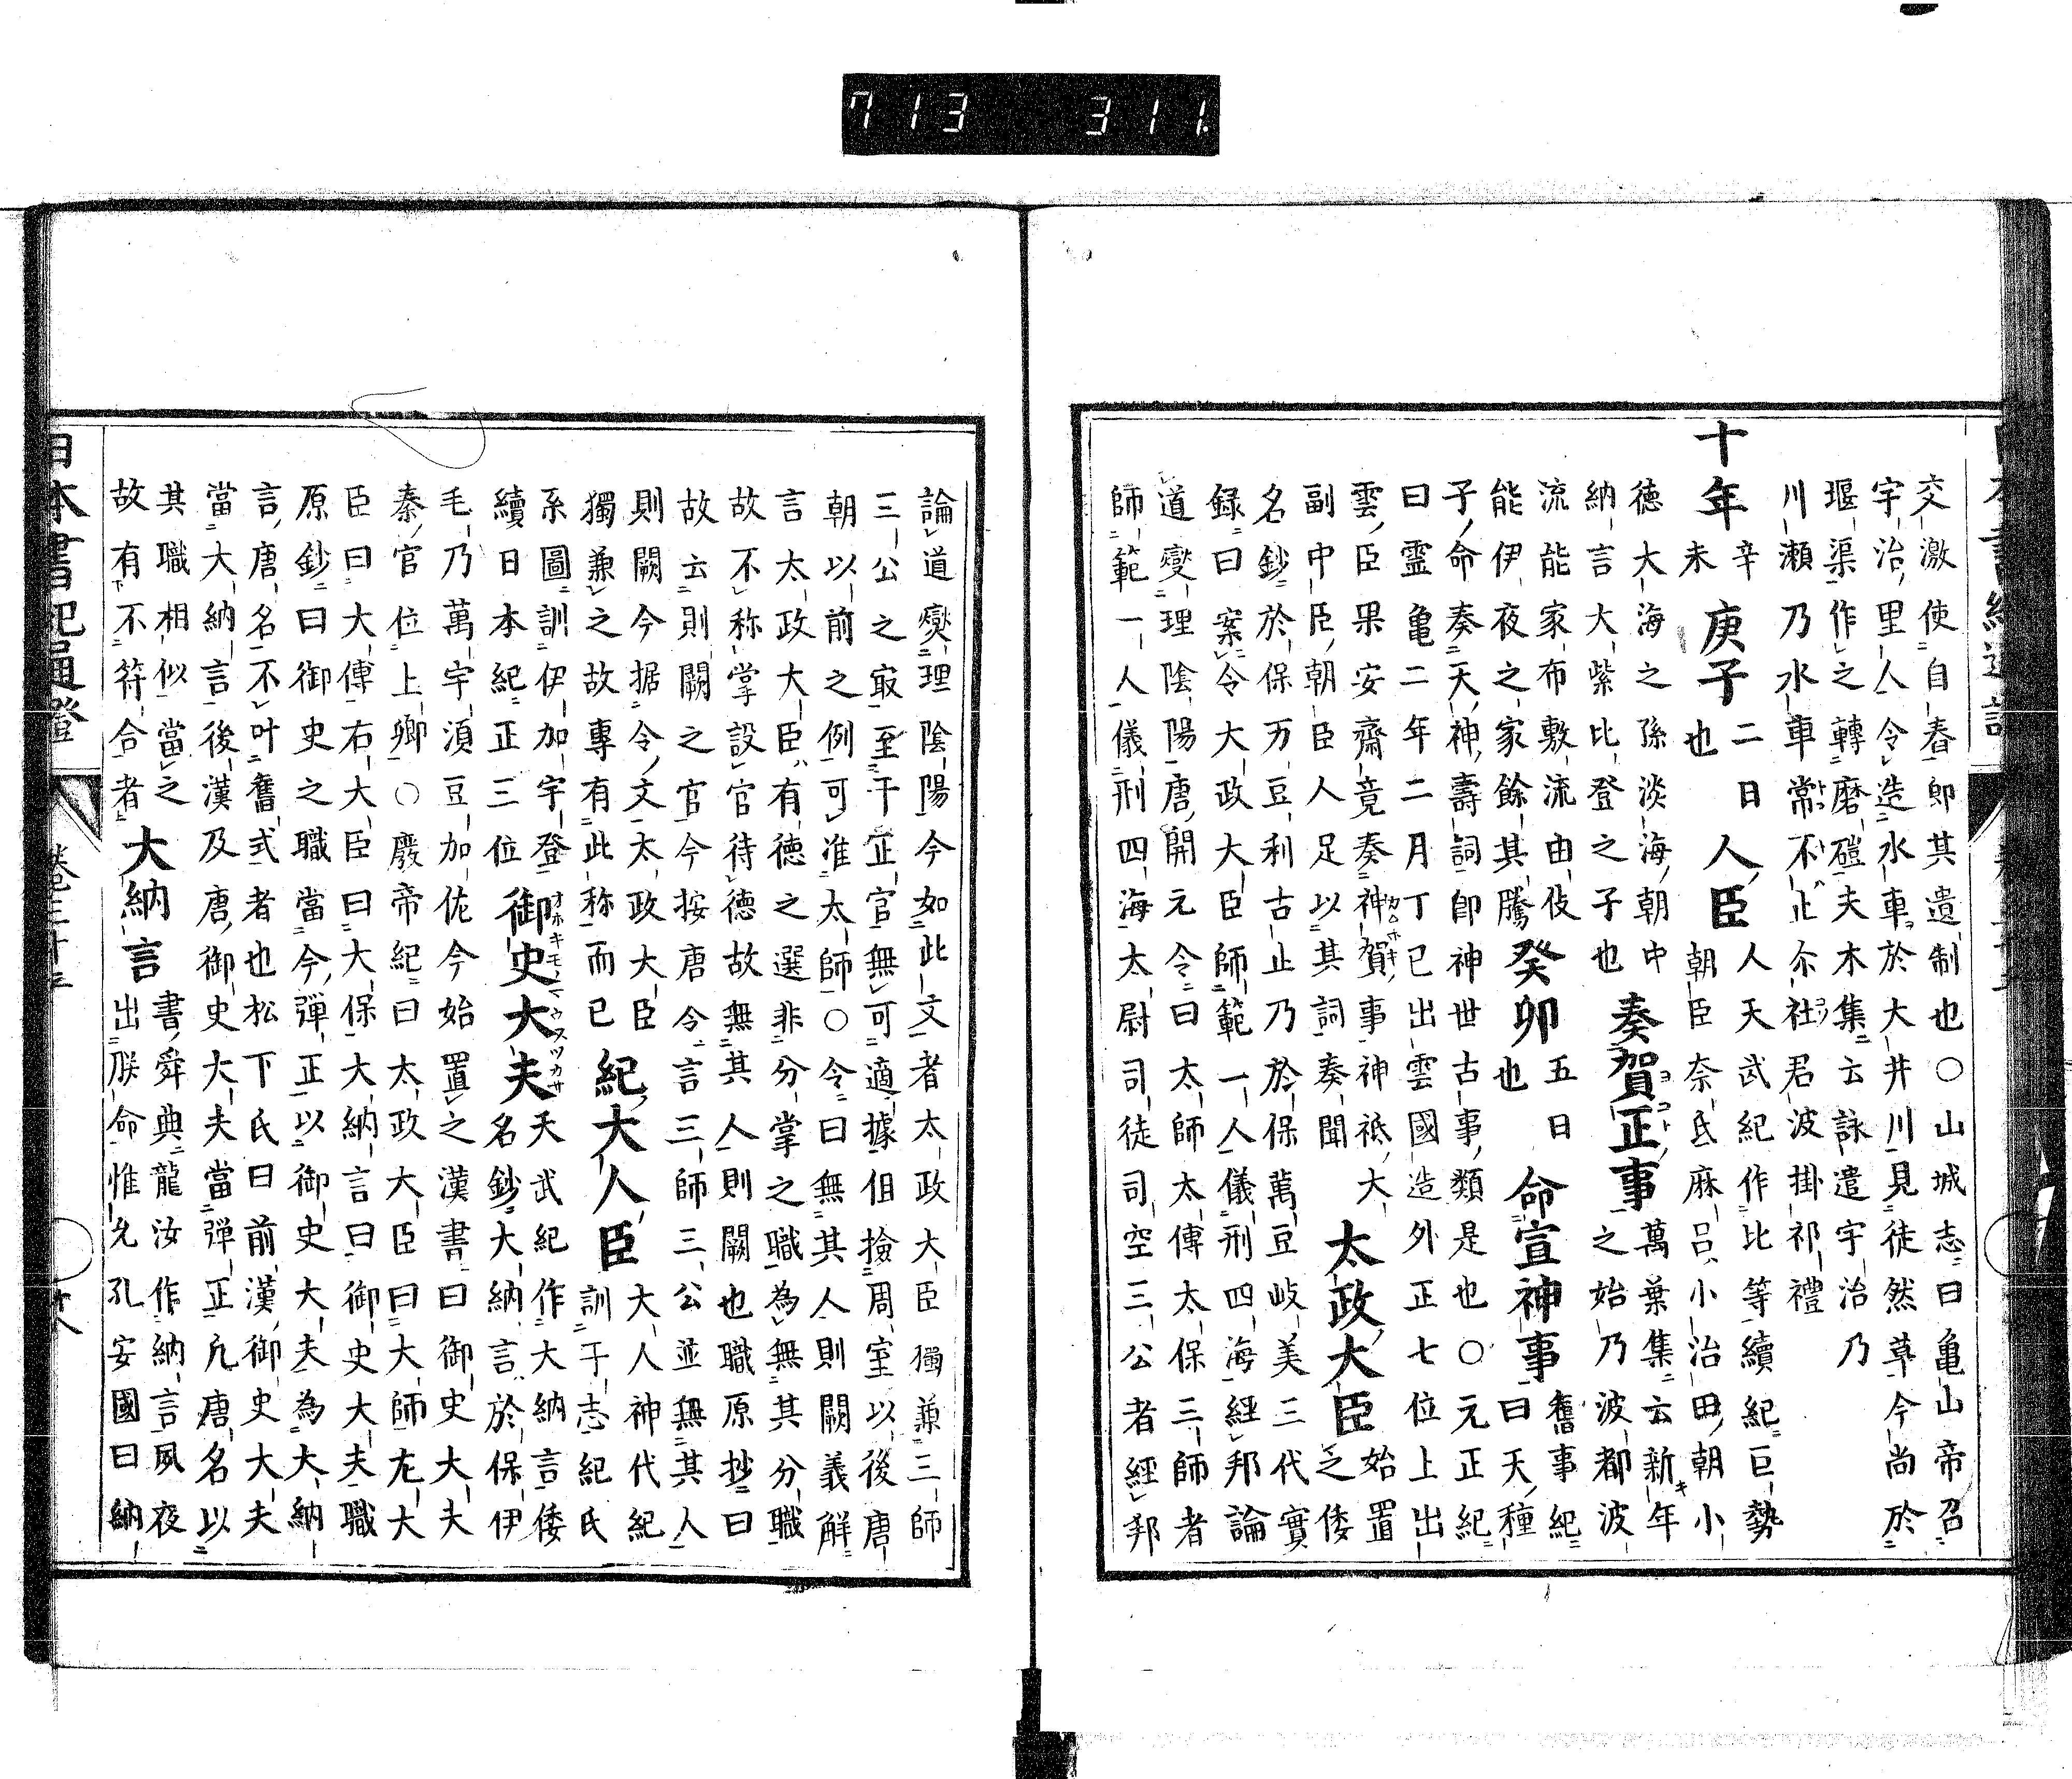 713 311
交激使自舂卽其遺制也〇山城志曰亀山帝召
宇治里人令造水車於大井川見徒然草今尚於
堰渠作之轉磨磑夫木集云詠遣宇治乃
川瀬乃水車常不止尒社君波掛祁禮
十年辛未庚子二日也人臣人天武紀作比等續紀巨勢
朝臣奈氐麻呂小治田朝小
徳大海之孫淡海朝中
納言大紫比登之子也奏賀正事萬葉集云新年
之始乃波都波
流能家布敷流由伎
能伊夜之家餘其騰癸卯五日也命宣神事舊事紀
曰天種
子命奏天神壽詞卽神世古事類是也〇元正紀
曰霊亀二年二月丁巳出雲國造外正七位上出
雲臣果安齋竟奏神賀事神祇大
副中臣朝臣人足以其詞奏聞太政大臣始置
之倭
名鈔於保万豆利古止乃於保萬豆岐美三代實
録曰案令大政大臣師範一人儀刑四海經邦論
道燮理陰陽唐開元令曰太師太傅太保三師者
師範一人儀刑四海太尉司徒司空三公者經邦
論道燮理陰陽今如此文者太政大臣獨兼三師
三公之㝡至干正官無可適據但撿周室以後唐
朝以前之例可准太師〇令曰無其人則闕義解
言太政大臣有徳之選非分掌之職為無其分職
故不称掌設官待徳故無其人則闕也職原抄曰
故云則闕之官今按唐令言三師三公並無其人
則闕今据令文太政大臣
獨兼之故専有此称而已紀大人臣大人神代紀
訓于志紀氏
系圖訓伊加宇登
續日本紀正三位御史大夫天武紀作大納言倭
名鈔大納言於保伊
毛乃萬宇湏豆加佐今始置之漢書曰御史大夫
秦官位上卿〇廢帝紀曰太政大臣曰大師左大
臣曰大傅右大臣曰大保大納言曰御史大夫職
原鈔曰御史之職當今弾正以御史大夫為大納
言唐名不叶舊式者也松下氏曰前漢御史大夫
當大納言後漢及唐御史大夫當弾正凢唐名以
其職相似當之
故有不符合者大納言書舜典龍汝作納言夙夜
出朕命惟允孔安國曰納
日本書紀通證